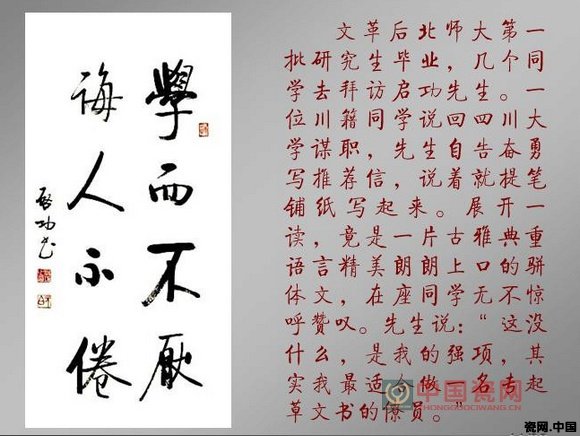 學而不厭
誨人不倦
啓功書
文革后北师大第一
批研究生毕业，几个同
学去拜访启功先生。一
位川籍同学说回四川大
学谋职，先生自告奋勇
写推荐信，说着就提笔
铺纸写起来。展开一
读，竟是一片古雅典重
语言精美朗朗上口的骈
体文，在座同学无不惊
呼赞叹。先生说：“这没
什么，是我的强项，其
实我最适合做一名专起
草文书的僚员。”
中国瓷网
HONGGUOCIWANG.CN
瓷网.中国